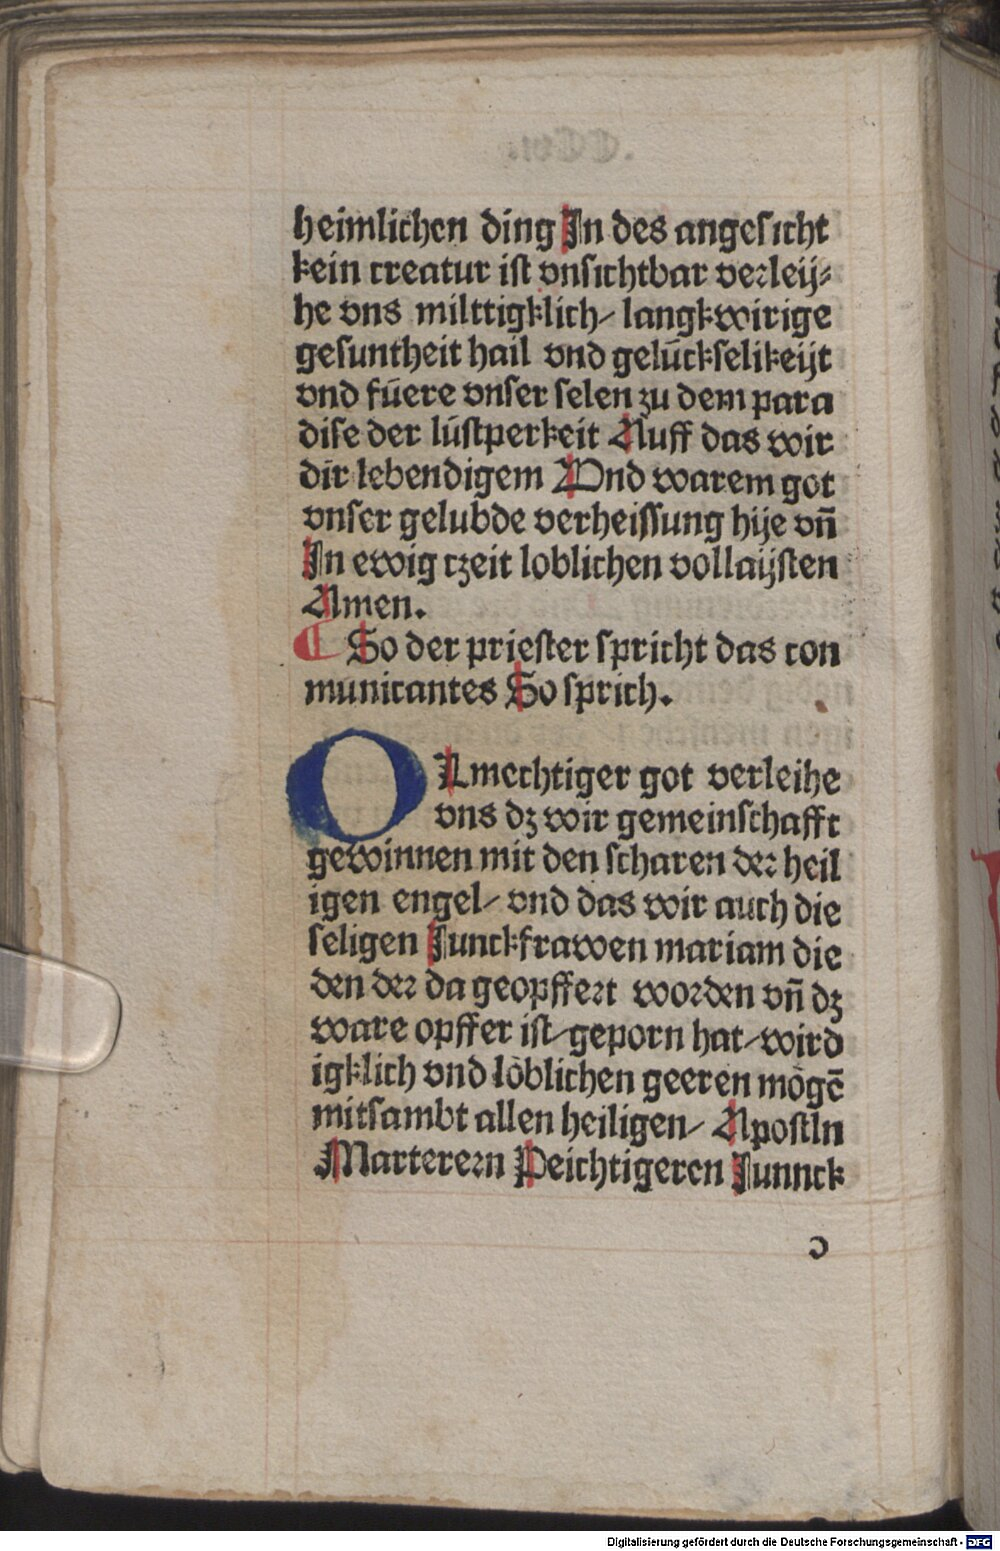 heimlichen ding In des angesicht
kein creatur ist vnsichtbar verleij⸗
he vns milttigklich/ langkwirige
gesuntheit hail vnd gelůckselikeijt
vnd fůere vnser selen zu dem para
dise der lůstperkeit Auff das wir
dir lebendigem Vnd warem got
vnser gelubde verheissung hije vñ
In ewig czeit loblichen vollaijsten
Amen.
¶ So der priester spricht das con
municantes So sprich.
O Almechtiger got verleihe
vns dz wir gemeinschafft
gewinnen mit den scharen der heil
igen engel/ vnd das wir auch die
seligen Junckfrawen mariam die
den der da geopffert worden vñ dz
ware opffer ist/ geporn hat/ wird
igklich vnd lőblichen geeren mőgē
mitsambt allen heiligen/ Apostln
Marterern Peichtigeren Junnck
c
Digitalisierung gefördert durch die Deutsche Forschungsgemeinschaft - DFG